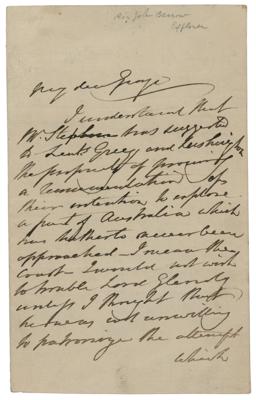 Sir John Barrow
Explorer
My dear George
I understand that
Mr. Stephen has suggested
to Lieuts Grey and Lushington
the propriety of procuring
a recommendation of
their intention to explore
a part of Australia which
has hitherto never been
approached – I mean the
coast I would not wish
to trouble Lord Glenelg
unless I thought that
he was not unwilling
to patronize the attempt
which